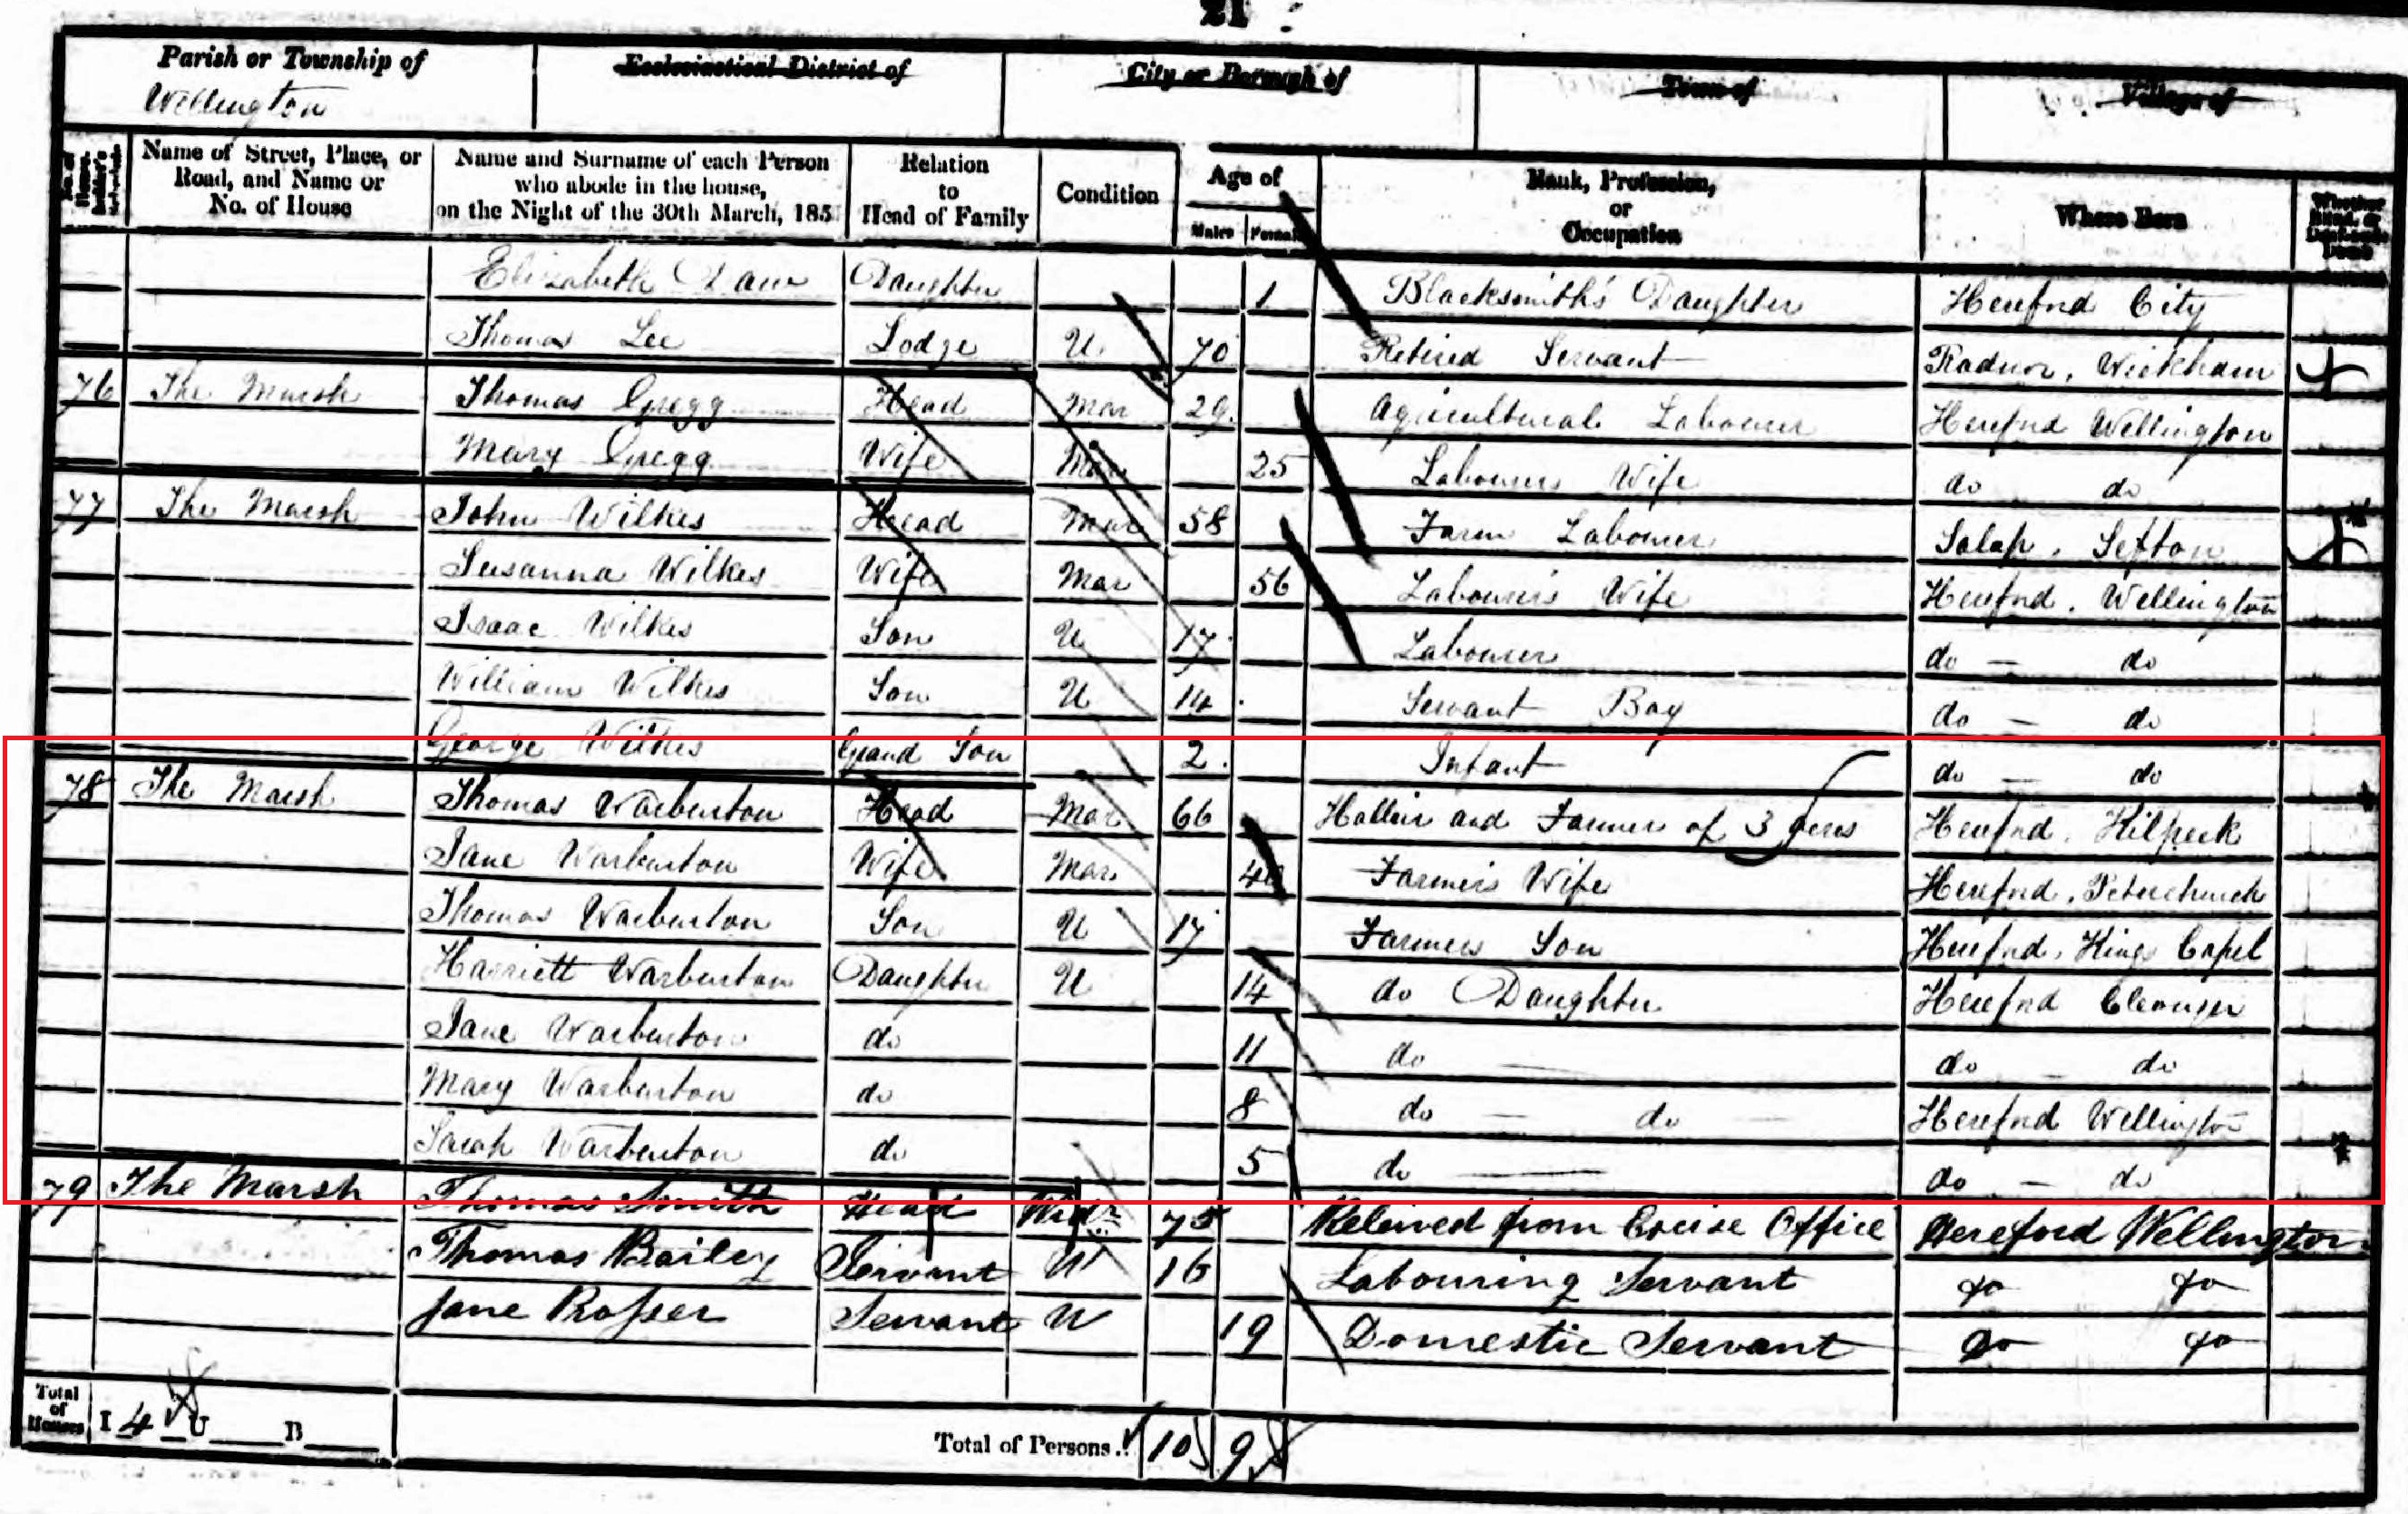 21
Parish or Township of
Wellington
Ecclesiastical District of
City or Borough of
Town of
Village of
Name of Street, Place, or Road, and Name or No. of House
Name and Surname of each Person who abode in the house, on the Night of the 30th March, 185
Relation to Head of Family
Condition
Age of
Males Females
Rank, Profession, or Occupation
Where Born
Whether Blind, or Deaf-and-Dumb
Elizabeth Daughter 1 Blacksmith's Daughter Hereford City
Thomas Lee Lodge U 70 Retired Servant Radnor,
76 The Marsh Thomas Gregg Head Mar 29 Agricultural Labourer Hereford Wellington
Mary Gregg Wife Mar 25 Labourers Wife do do
77 The Marsh John Wilkes Head Mar 58 Farm Labourer Salop,
Susanna Wilkes Wife Mar 56 Labourer's Wife Hereford, Wellington
Isaac Wilkes Son U 17 Labourer do — do
William Wilkes Son U 14 Servant Boy do — do
George Wilkes Grand Son 2 Infant do — do
78 The Marsh Thomas Warburton Head Mar 66 and Farmer of 3 Acres Hereford, Kilpeck
Jane Warburton Wife Mar Farmer's Wife Hereford, Peterchurch
Thomas Warburton Son U 17 Farmers Son Hereford, Kings Capel
Harriett Warburton Daughter U 14 do Daughter Hereford
Jane Warburton do 11 do — do — do
Mary Warburton do 8 do — do — Hereford Wellington
Sarah Warburton do 5 do — do — do
79 The Marsh Thomas Smith Head Widr 75 from Excise Office Hereford Wellington
Thomas Bailey Servant U 16 Labouring Servant do do
Jane Rosser Servant U 19 Domestic Servant do do
Total of Houses I 4 U B
Total of Persons 10 9